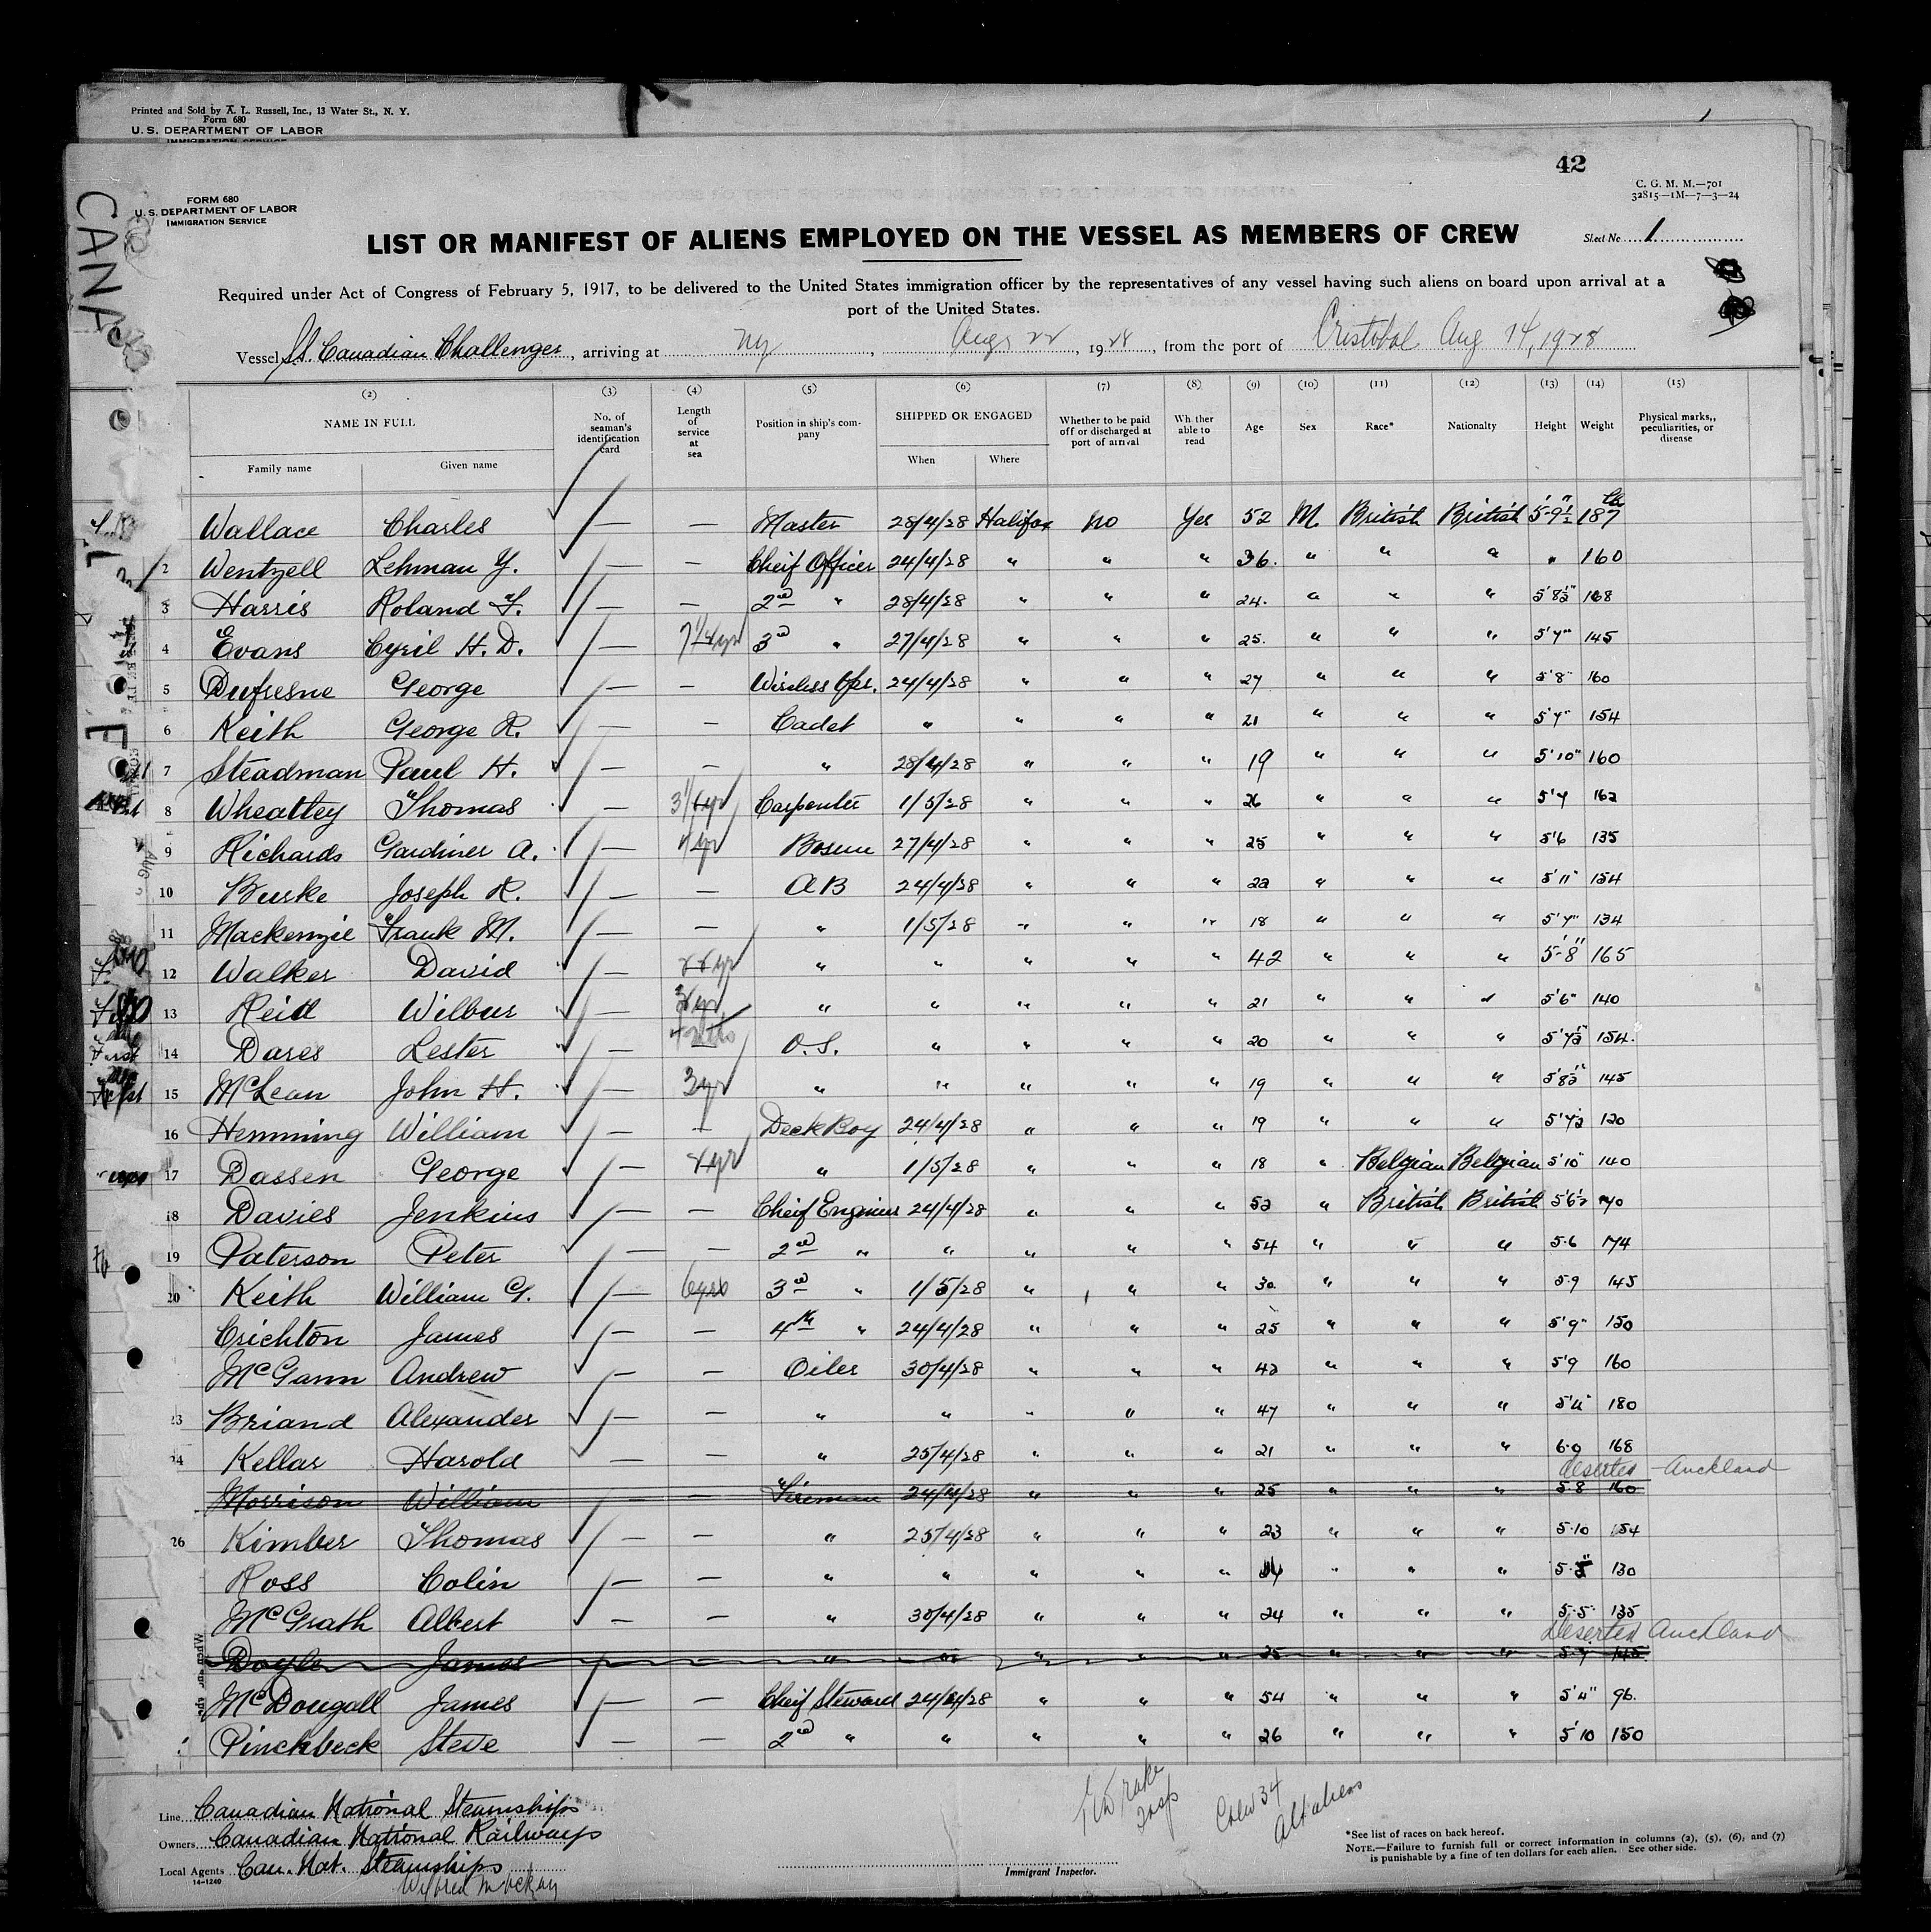 Printed and Sold by A. L. Russell, Inc., 13 Water St., N. Y.
Form 680
U. S. DEPARTMENT OF LABOR
IMMIGRATION SERVICE
42
CANA
FORM 680
U. S. DEPARTMENT OF LABOR
IMMIGRATION SERVICE
C. G. M. M.—701
32815—1M—7—3—24
LIST OR MANIFEST OF ALIENS EMPLOYED ON THE VESSEL AS MEMBERS OF CREW
Sheet No. 1
Required under Act of Congress of February 5, 1917, to be delivered to the United States immigration officer by the representatives of any vessel having such aliens on board upon arrival at a
port of the United States.
Vessel SS. Canadian Challenger, arriving at NY, Aug 22, 1928, from the port of Cristobal Aug 14, 1928
(2) (3) (4) (5) (6) (7) (8) (9) (10) (11) (12) (13) (14) (15)
NAME IN FULL
Family name Given name
No. of seaman's identification card
Length of service at sea
Position in ship's company
SHIPPED OR ENGAGED
When Where
Whether to be paid off or discharged at port of arrival
Wh ther able to read
Age
Sex
Race*
Nationalty
Height
Weight
Physical marks,, peculiarities, or disease
Wallace Charles — — Master 28/4/28 Halifax No Yes 52 M British British 5'-9½" 187
2 Wentzell Lehman Y. — — Cheif Officer 24/4/28 " " " 36. " " " " 160
3 Harris Roland F. — — 2nd " 28/4/28 " " " 24. " " " 5'8½" 168
4 Evans Cyril H. D. — 3rd " 27/4/28 " " " 25. " " " 5'7" 145
5 Dufresne George — — Wireless Opr. 24/4/28 " " " 27 " " " 5'8" 160
6 Keith George R. — — Cadet " " " " 21 " " " 5'7" 154
7 Steadman Paul H. — — " 28/4/28 " " " 19 " " " 5'10" 160
8 Wheatley Thomas — Carpenter 1/5/28 " " " 26 " " " 5'7 162
9 Richards Gardiner A. — Bosun 27/4/28 " " " 25 " " " 5'6 135
10 Burke Joseph R. — — AB 24/4/28 " " " 22 " " " 5'11" 154
11 Mackenzie Frank M. — — " 1/5/28 " " " 18 " " " 5'7" 134
12 Walker David — " " " " " 42 " " " 5'-8" 165
13 Reid Wilbur — " " " " " 21 " " " 5'6" 140
14 Dares Lester — O.S. " " " " 20 " " " 5'7½" 154.
15 McLean John H. — 3yr " " " " " 19 " " " 5'8½" 145
16 Hemming William — — Deck Boy 24/4/28 " " " 19 " " " 5'7½ 120
17 Dassen George — " 1/5/28 " " " 18 " Belgian Belgian 5'10" 140
18 Davies Jenkins — — Cheif Engineer 24/4/28 " " " 52 " British British 5'6½
19 Paterson Peter — — 2nd " " " " " 54 " " " 5.6 174
20 Keith William G. — 6yrs 3rd " 1/5/28 " " " 30 " " " 5.9 145
Crichton James — — 4th " 24/4/28 " " " 25 " " " 5'9" 150
McGann Andrew — — Oiler 30/4/28 " " " 42 " " " 5'9 160
23 Briand Alexander — — " " " " " 47 " " " 5'4" 180
24 Kellar Harold — — " 25/4/28 " " " 21 " " " 6.0 168
deserted Auckland
Morrison William Fireman 24/4/28 " " " 25 " " " 5.8 160
26 Kimber Thomas — — " 25/4/28 " " " 23 " " " 5.10 154
Ross Colin — — " " " " " " " " 130
McGrath Albert — — " 30/4/28 " " " 24 " " " 5.5 135
Deserted Auckland
Doyle James " " " " " 25 " " " 5.7 145
McDougall James — — Cheif Steward 24/4/28 " " " 54 " " " 5'4" 96.
Pinchbeck Steve — — 2nd " " " " " 26 " " " 5'10 150
Line Canadian National Steamships
Owners Canadian National Railways
Local Agents Can. Nat. Steamships
14-1240
Crew 34
All aliens
Immigrant Inspector.
*See list of races on back hereof.
NOTE.—Failure to furnish full or correct information in columns (2), (5), (6), and (7)
is punishable by a fine of ten dollars for each alien. See other side.